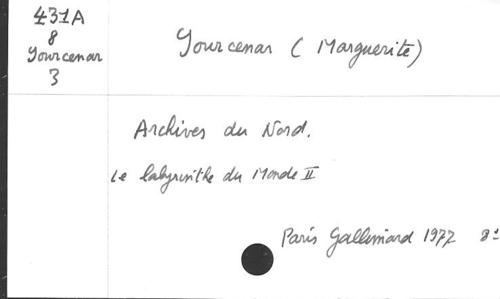 431A
8
Yourcenar
3
Yourcenar (Marguerite)
Archives du Nord.
Le labyrinthe du Monde II
Paris Gallimard 1977 8°